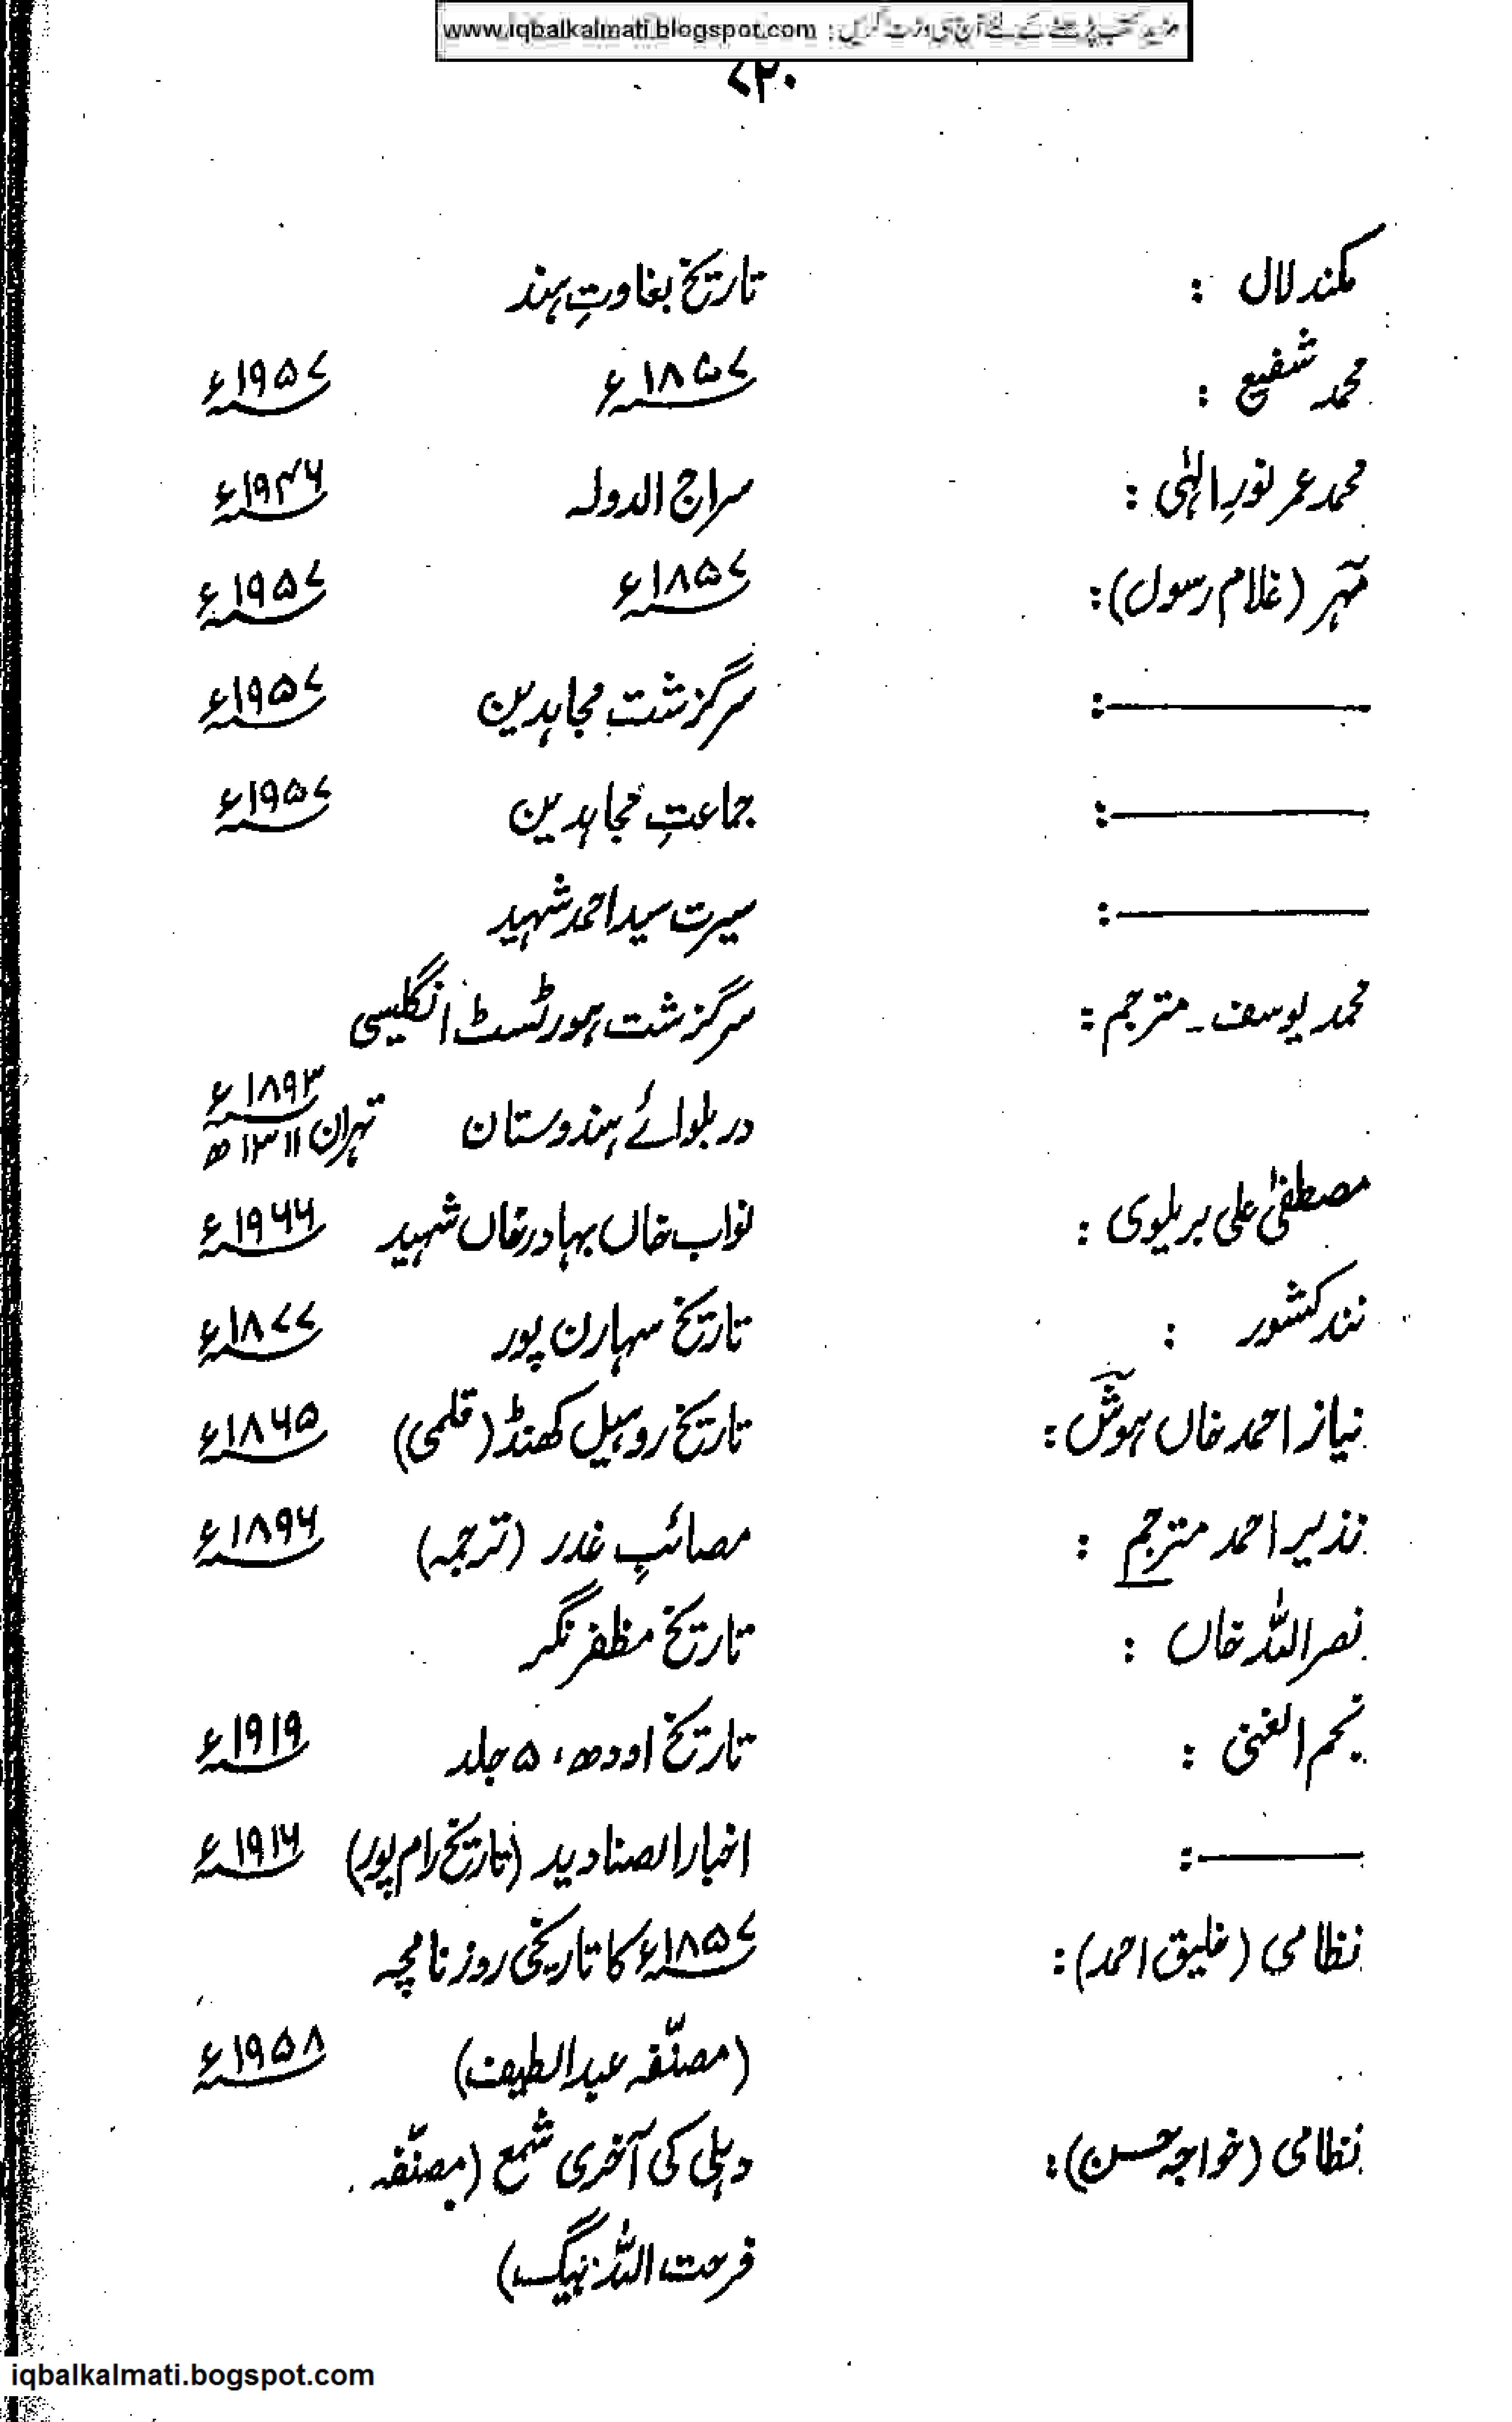 مزید کتب پڑھنے کے لئے آج ہی وزٹ کریں : www.iqbalkalmati.blogspot.com
۷۲۰
مکند لال : تاریخ بغاوتِ ہند
محمد شفیع : ۱۸۵۷ء ۱۹۵۷ء
محمد عمر نورِ الٰہی : سراج الدولہ ۱۹۴۶ء
مہر (غلام رسول): ۱۸۵۷ء ۱۹۵۷ء
ــــــــ: سرگزشت مجاہدین ۱۹۵۷ء
ــــــــ: جماعتِ مجاہدین ۱۹۵۷ء
ــــــــ: سیرت سید احمد شہید
محمد یوسف۔ مترجم: سرگزشت ہورٹسٹ انگلیسی
در بلوائے ہندوستان ۱۸۹۳ء
تہران ۱۳۱۱ھ
مصطفیٰ علی بریلوی : نواب خاں بہادر خاں شہید ۱۹۶۶ء
نند کشور : تاریخ سہارن پور ۱۸۷۷ء
نیاز احمد خاں ہوش: تاریخ روہیل کھنڈ (قلمی) ۱۸۶۵ء
نذیر احمد مترجم : مصائبِ غدر (ترجمہ) ۱۸۹۶ء
نصر اللہ خاں : تاریخ مظفر نگر
نجم الغنی : تاریخ اودھ، ۵ جلد ۱۹۱۹ء
ــــــــ: اخبار الصنادید (تاریخ رام پور) ۱۹۱۶ء
نظامی (خلیق احمد): ۱۸۵۷ء کا تاریخی روزنامچہ
(مصنّفہ عبدالطیف) ۱۹۵۸ء
نظامی (خواجہ حسن): دہلی کی آخری شمع (مصنّفہ
فرحت اللہ بیگ)
iqbalkalmati.bogspot.com